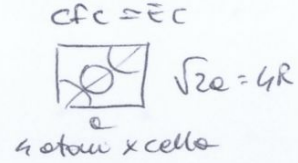 CFC = EC
√2a = 4R
a
4 atomi x cella